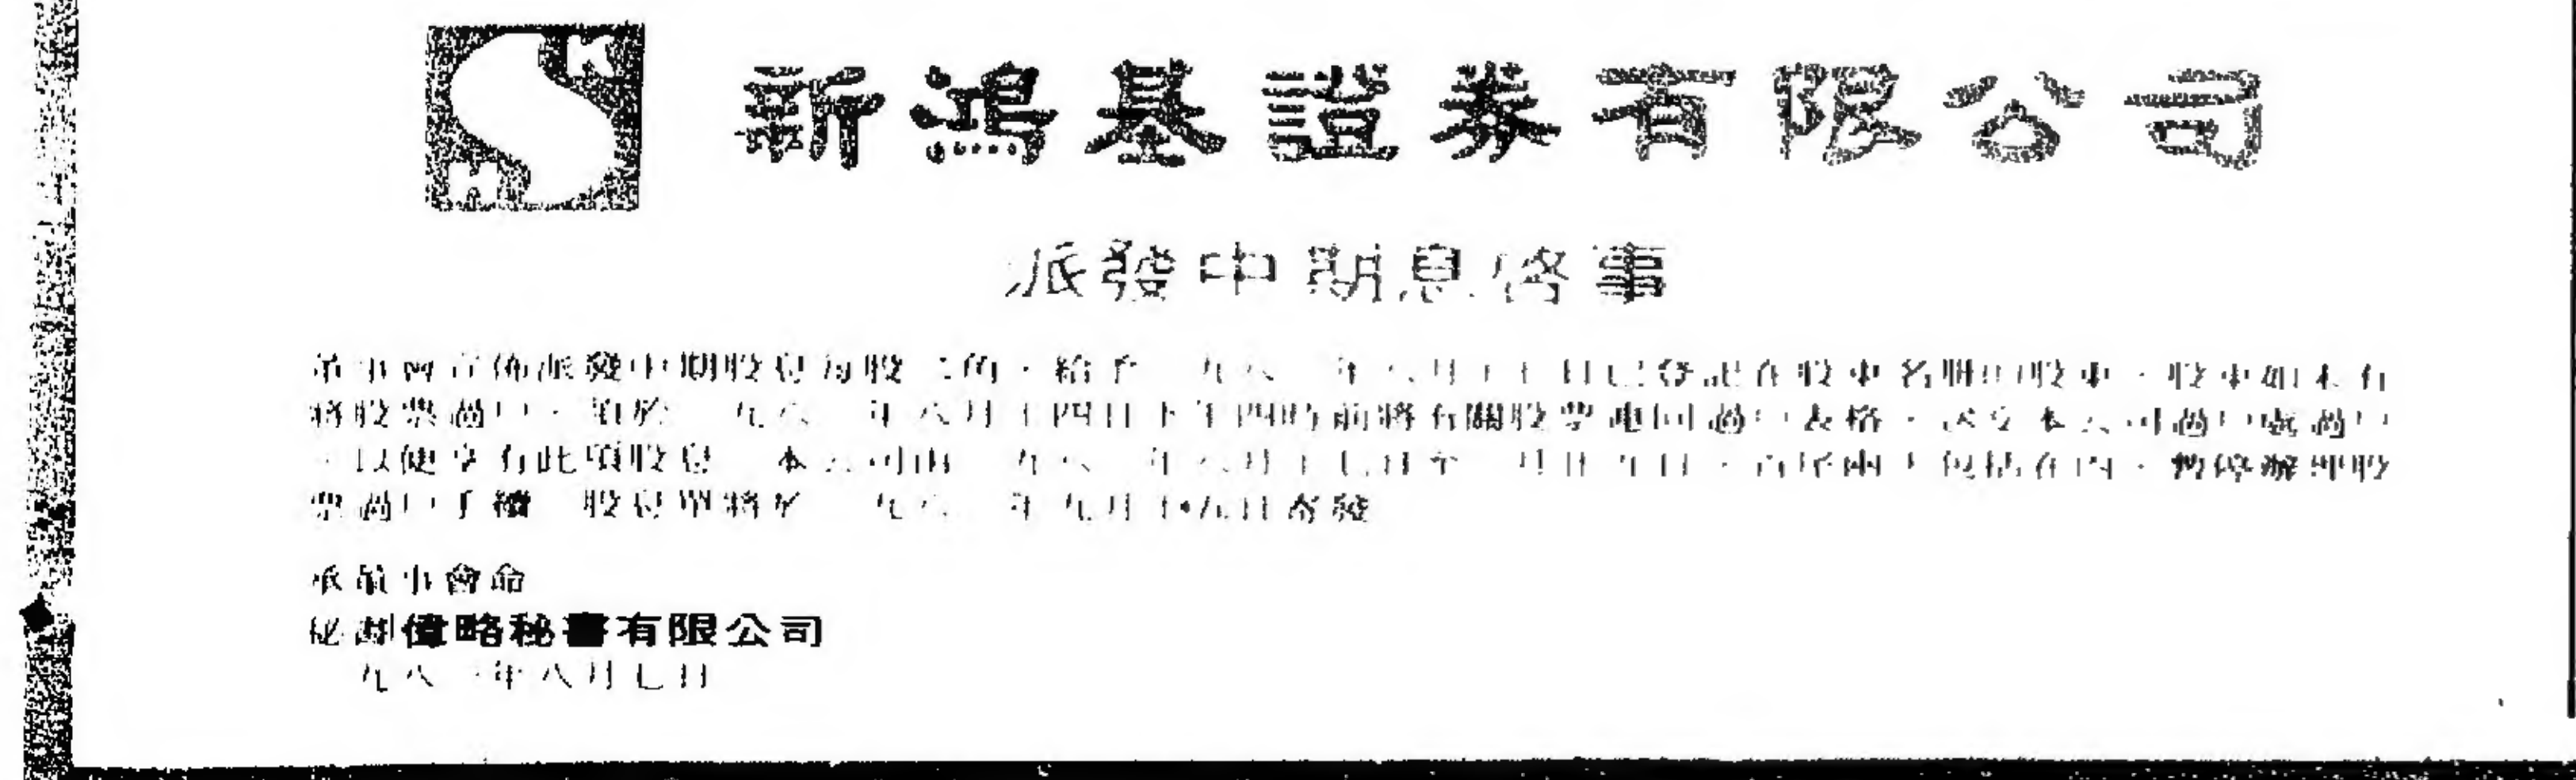 SHK
新鴻基證券有限公司
派發中期息啓事
董事會宣佈派發中期股息每股二角,給予 九八 年八月十七日已登記在股東名冊的股東,股東如未有
將股票過戶,須於 九八 年八月十四日下午四時前將有關股票連同過戶表格,送交本公司過戶處過戶
以便享有此項股息 本公司由 九八 年八月十七日至 月廿九日,首尾兩天包括在內,暫停辦理股
票過戶手續 股息單將於 九八 年九月 日寄發
承董事會命
秘書 偉略秘書有限公司
九八 年八月七日